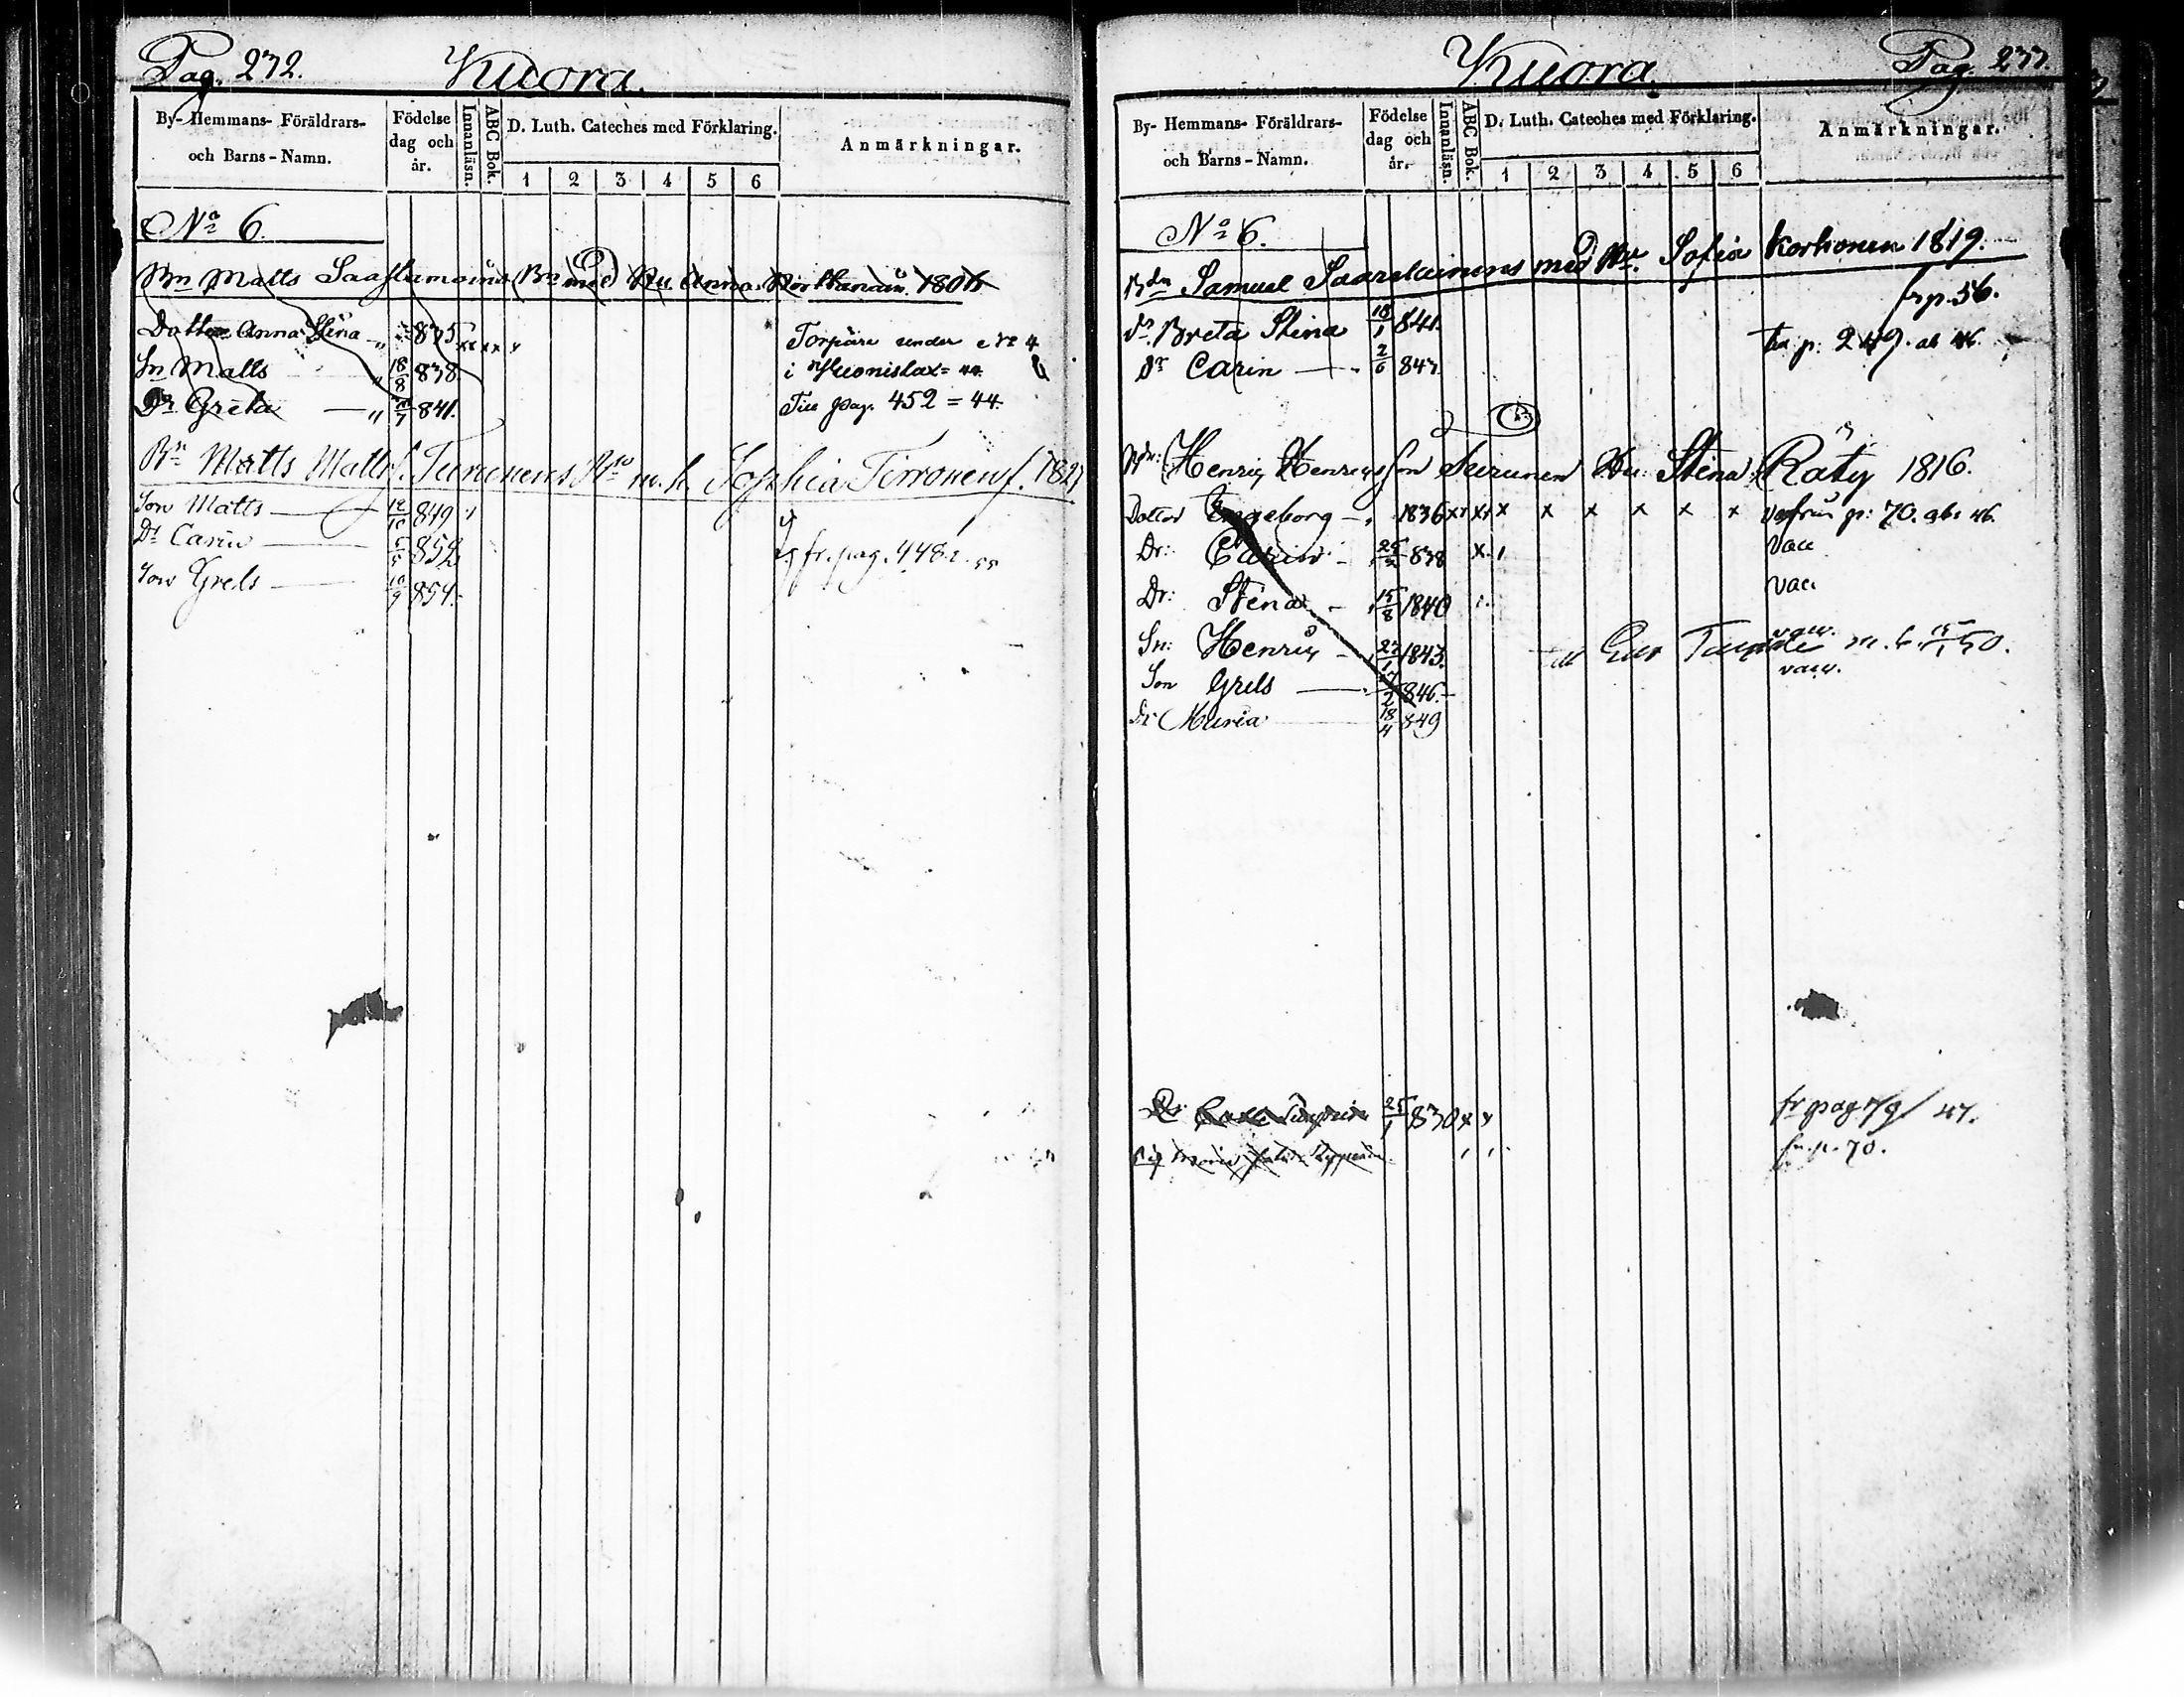 Pag. 232. Kuora.
By- Hemmans- Föräldrars- och Barns - Namn.
Födelse dag och år.
Innanläsn.
ABC Bok.
D. Luth. Cateches med Förklaring.
1 2 3 4 5 6
Anmärkningar.
No 6.
Bn Matts Saastamoins Bn med Hu Anna
Dotter Anna Stina 835 xx xx x Torpare under No 4
Sn Matts 18/8 838 i Kuonislax
Dr Greta 7 841. Till pag. 452 = 44.
Bn Matts Matts. Turunens m. h. Sophia Tirronen f. 182
Son Matts 12/10 849
Dr Carin 5/5 852 fr. pag. 448. 55
Son Grels 10/9 854.
Kuora. Pag. 233.
By- Hemmans- Föräldrars- och Barns - Namn.
Födelse dag och år.
Innanläsn.
ABC Bok.
D. Luth. Cateches med Förklaring.
1 2 3 4 5 6
Anmärkningar.
No 6.
Samuel Saarelainens med Hu. Sofia Korhonen 1819.
fr p. 56.
Dr. Breta Stina 18/1 841. till p: 249. ab 46.
Dr Carin 2/6 843.
Henric Henricsson Turunen Hu: Stina Räty 1816.
Dotter Engeborg 1836 xx xx x x x x x x från p: 70. ab: 46.
Dr: Carin 838 x. vacc
Dr: Stina 15/8 1840 vacc
Sn: Henric 23/1 1843. vacc. m. h. 15/1 50.
Son Grels 17/2 846. vacc.
Dr Maria 18/4 849
Dr: 25/1 830 x x fr pag 79/ 47.
fr. p. 70.